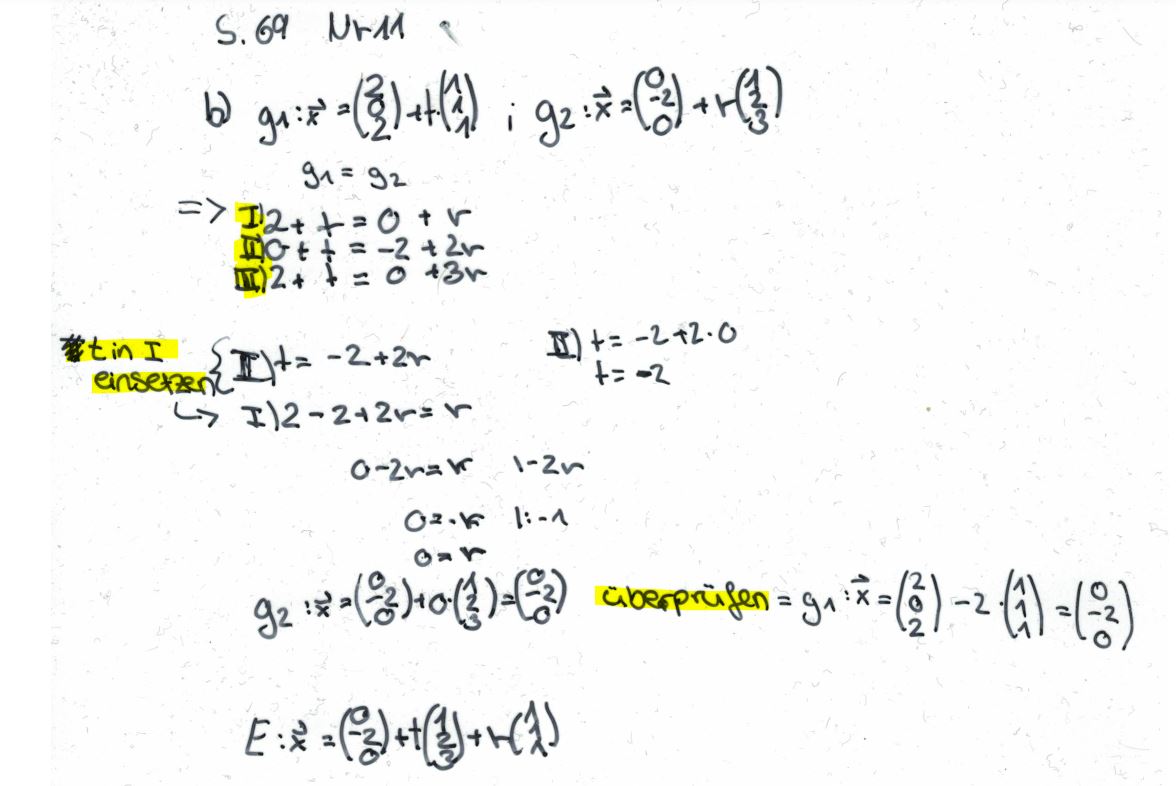 S. 69 Nr 11
b) g1: x⃗ = (2 0 2) + t·(1 1 1) ; g2: x⃗ = (0 -2 0) + r(1 2 3)
g1 = g2
=> I) 2 + t = 0 + r
II) 0 + t = -2 + 2r
III) 2 + t = 0 + 3r
t in I
einsetzen { II) t = -2 + 2r
↳ I) 2 - 2 + 2r = r
0 - 2r = r |-2r
0 = -r |: -1
0 = r
II) t = -2 + 2·0
t = -2
g2: x⃗ = (0 -2 0) + 0·(1 2 3) = (0 -2 0)
überprüfen = g1: x⃗ = (2 0 2) - 2·(1 1 1) = (0 -2 0)
E: x⃗ = (0 -2 0) + t(1 2 3) + r(1 1 1)